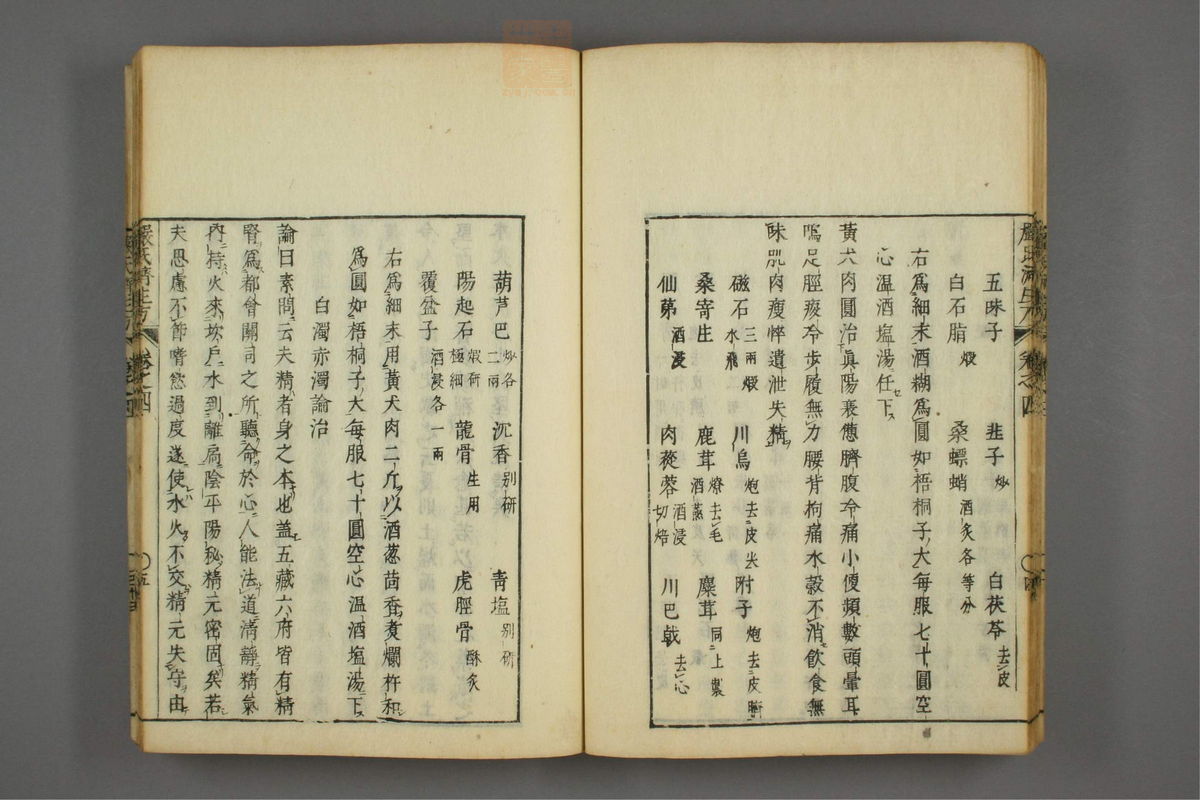 五味子 韭子炒 白茯苓去皮
白石脂煅 桑螵蛸酒炙各等分
右爲細末酒糊爲圓如梧桐子大每服七十圓空
心温酒塩湯任下
黄犬肉圓治眞陽衰憊臍腹冷痛小便頻數頭暈耳
鳴足脛痠冷歩履無力腰背拘痛水穀不消飲食無
味肌肉瘦悴遺泄失精
磁石三兩煅水飛 川烏炮去皮尖 附子炮去皮臍
桑寄生 鹿茸燎去毛酒蒸 麋茸同上製
仙茅酒浸 肉蓯蓉酒浸切焙 川巴戟去心
葫芦巴炒各二兩 沉香別研 青塩別研
陽起石煅研極細 龍骨生用 虎脛骨酥炙
覆盆子酒浸各一兩
右爲細末用黄犬肉二斤以酒葱茴香煑爛杵和
爲圓如梧桐子大每服七十圓空心温酒塩湯下
白濁赤濁論治
論曰素問云夫精者身之本也盖五藏六府皆有精
腎爲都會關司之所聽命於心人能法道清靜精氣
内持火來坎戸水到離扃陰平陽秘精元密固矣若
夫思慮不節嗜慾過度遂使水火不交精元失守由
嚴氏濟生方 卷之四